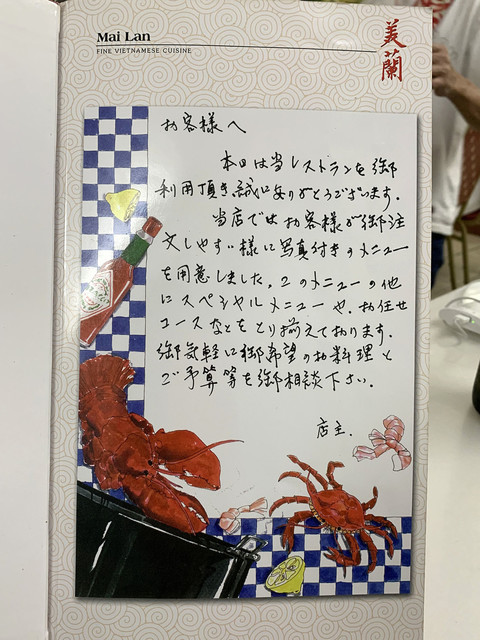 Mai Lan
FINE VIETNAMESE CUISINE
美蘭
お客様へ
本日は当レストランを御
利用頂き誠にありがとうございます.
当店ではお客様が御注
文しやすい様に写真付きのメニュー
を用意しました。このメニューの他
にスペシャルメニューや、お任せ
コースなどをとり揃えております.
御気軽に御希望のお料理と
ご予算等を御相談下さい.
店主.